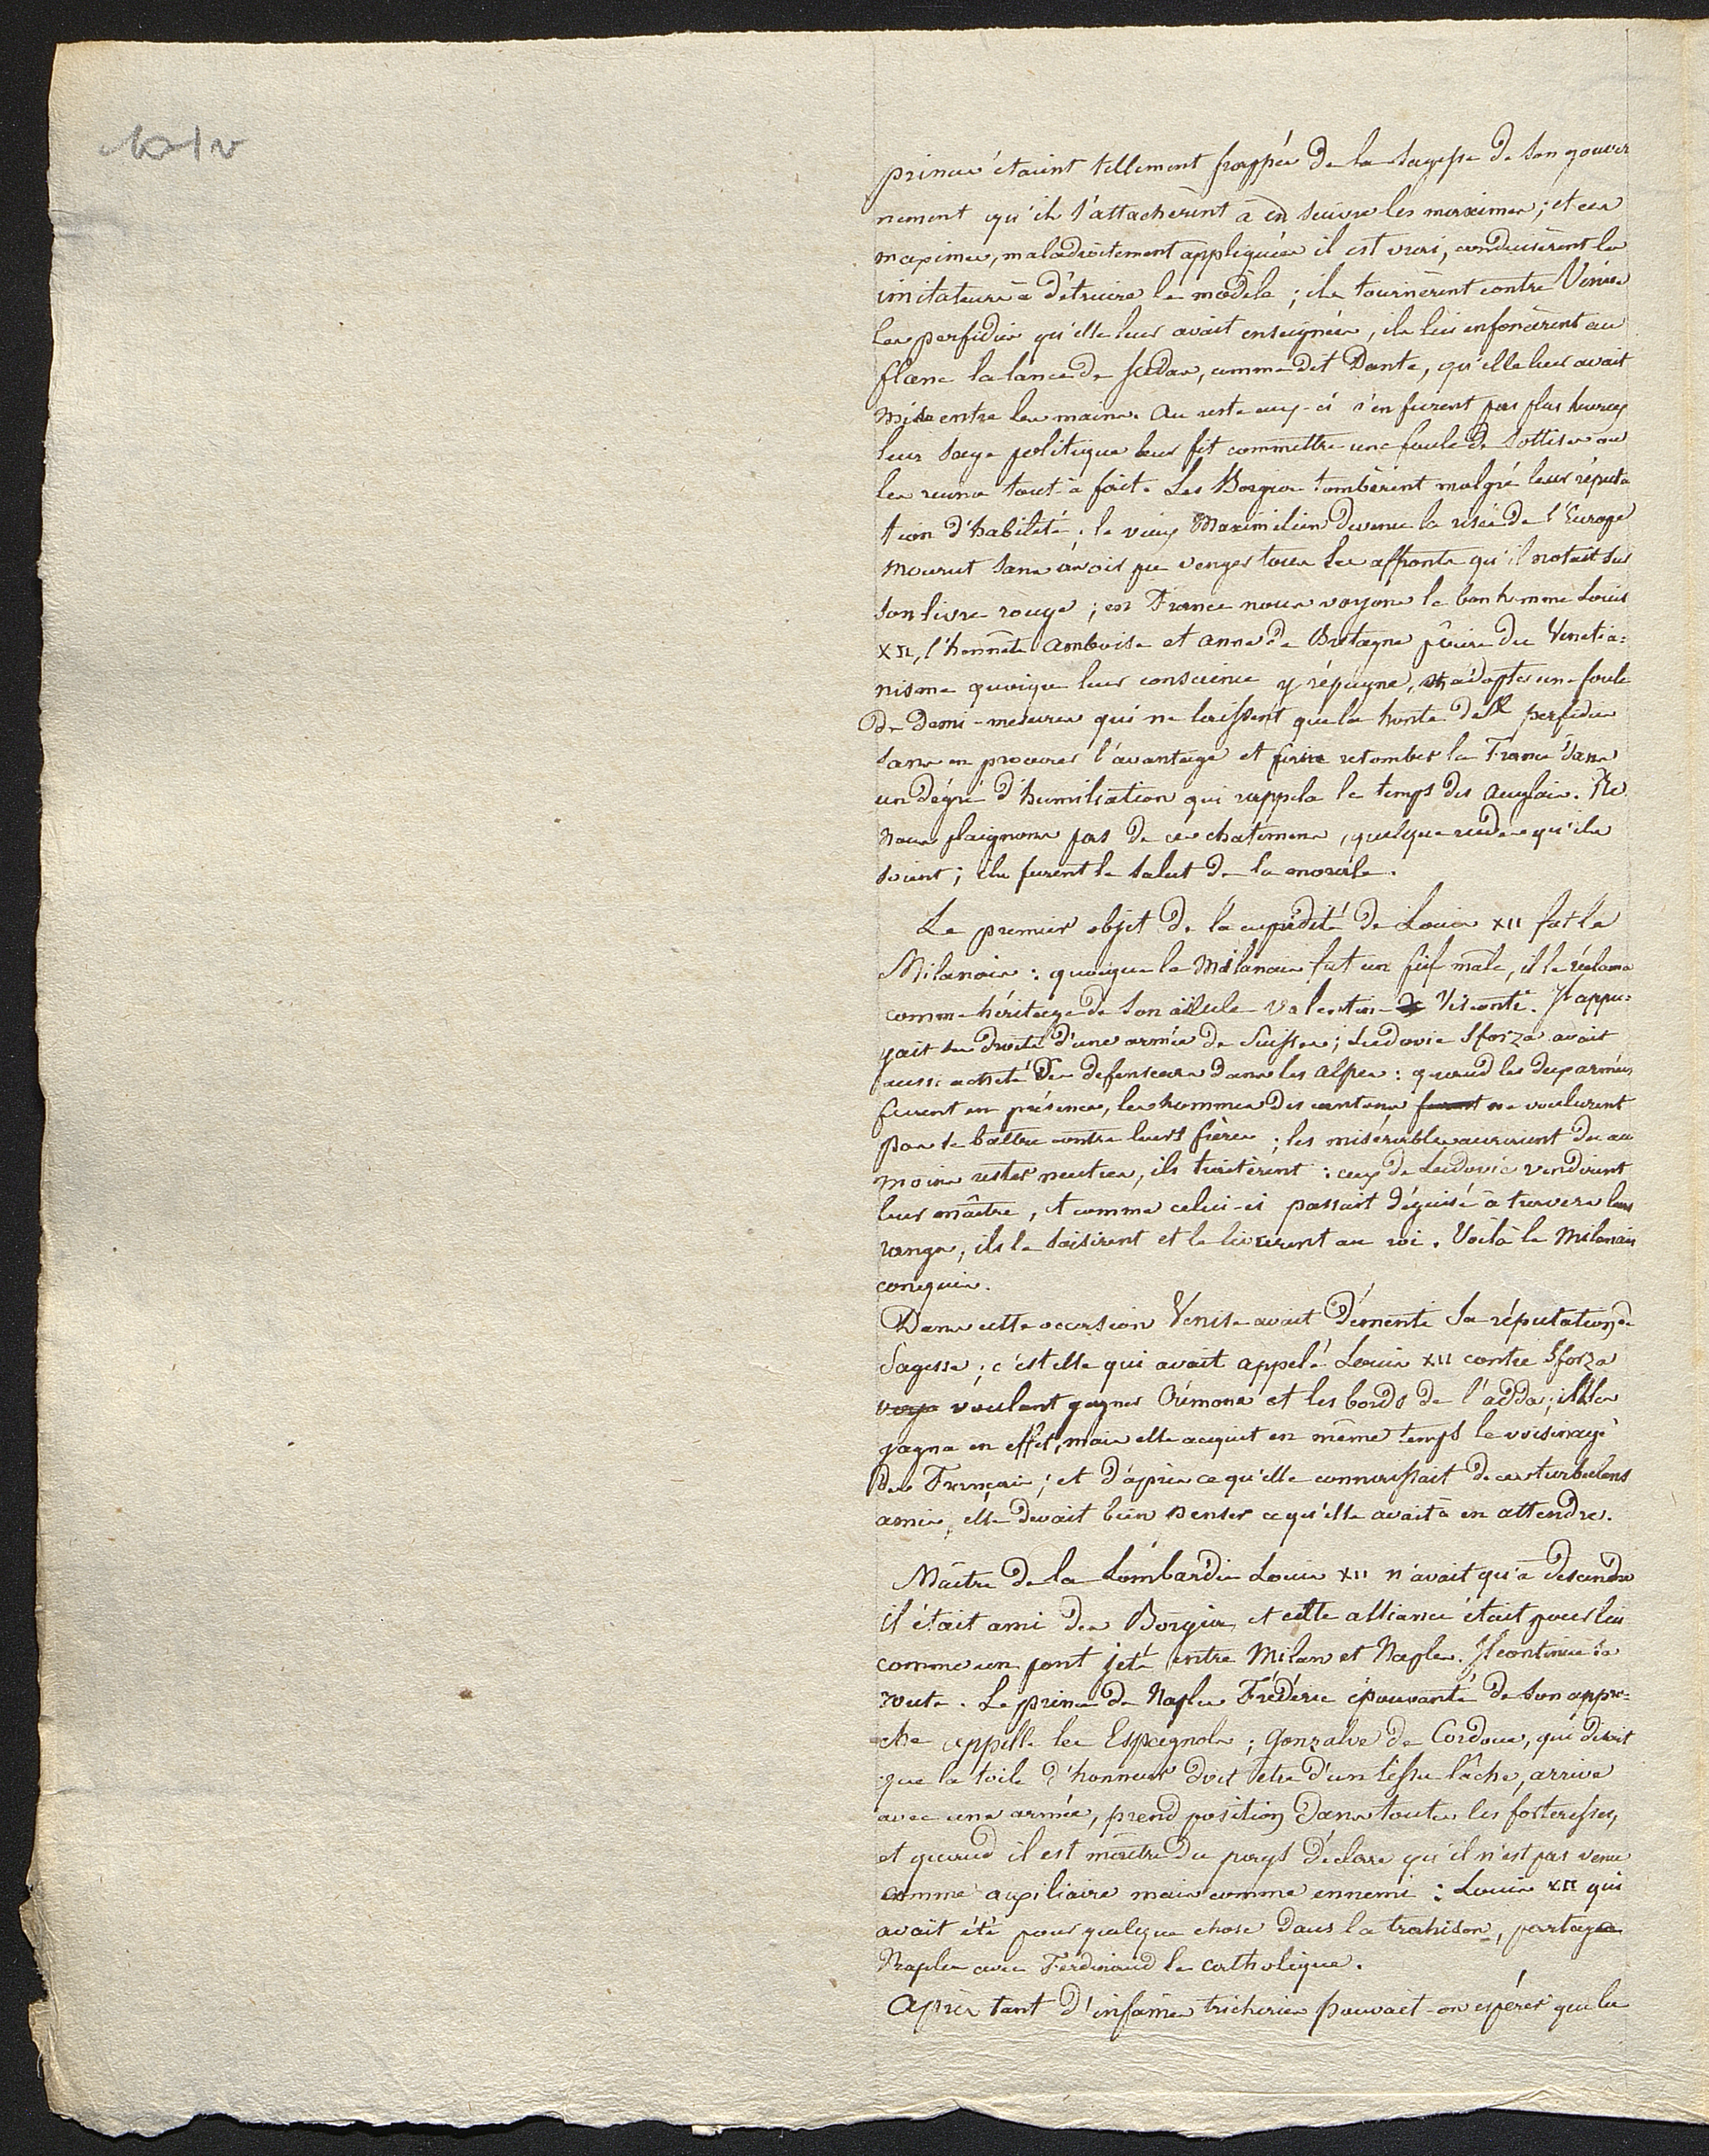 princes étaient tellement frappés de la sagesse de son gouver
nement qu'ils s'attachèrent à en suivre les maximes ; et ces
maximes, maladroitement appliquées il est vrai, conduisèrent les
imitateurs à détruire le modèle ; ils tournèrent contre Venise
les perfidies qu'elle leur avait enseignées, ils lui enfoncèrent au
flanc la lance de Judas, comme dit Dante, qu'elle leur avait
mise entre les mains. Au reste ceux-ci n'en furent pas plus heureux
leur sage politique leur fit commettre une foule de sottises ou
les ruina tout-à-fait. Les Borgia tombèrent malgré leur réputa
tion d'habileté ; le vieux Maximilien devenu la risée de l'Europe
mourut sans avoir pu venger tous les affronts qu'il notait sur
son livre rouge ; en France nous voyons le bonhomme Louis
XII, l'honnête Amboise et Anne de Bretagne faire du Venetia=
nisme quoique leur conscience y répugne, adopter une foule
de demi-mesures qui ne laissent que la honte de la perfidie
sans en procurer l'avantage et faire retomber la France dans
un dégré d'humiliation qui rappela le temps des Anglais. Ne
nous plaignons pas de ces chatimens, quelque rudes qu'ils
soient ; ils furent le salut de la morale.
Le premier objet de la cupidité de Louis XII fut le
Milanais : quoique le Milanais fut un fief mâle, il le réclama
comme héritage de son aïeule Valentine Visconti. Il appu=
yait ses droits d'une armée de Suisses ; Ludovic Sforza avait
aussi acheté des defenseurs dans les Alpes : quand les deux armées
furent en présence, les hommes des cantons furent ne voulurent
pas se battre contre leurs frères ; les misérables auraient du au
moins rester neutres, ils traitèrent : ceux de Ludovic vendirent
leur maître, et comme celui-ci passait déguisé à travers leurs
rangs, ils le saisirent et le livrèrent au roi. Voilà le Milanais
conquis.
Dans cette occasion Venise avait démenti sa réputation de
sagesse ; c'est elle qui avait appelé Louis XII contre Sforza
voulant gagner Crémone et les bords de l'Adda ; elle les
gagna en effet, mais elle acquit en même temps le voisinage
des Français ; et d'après ce qu'elle connaissait de ces turbulens
amis, elle devait bien penser ce qu'elle avait à en attendre.
Maître de la Lombardie Louis XII n'avait qu'à descendre
il était ami des Borgia, et cette alliance était pour lui
comme un pont jeté entre Milan et Naples. Il continue sa
route. Le prince de Naples Frédéric épouvanté de son appro=
che appelle les Espagnols ; Gonzalve de Cordoue, qui disait
que la toile d'honneur doit être d'un tissu lâche, arrive
avec une armée, prend position dans toutes les forteresses,
et quand il est maître du pays déclare qu'il n'est pas venu
comme auxiliaire mais comme ennemi : Louis XII qui
avait été pour quelque chose dans la trahison, partagea
Naples avec Ferdinand le catholique.
Après tant d'infâmes tricheries pouvait-on espérer que les